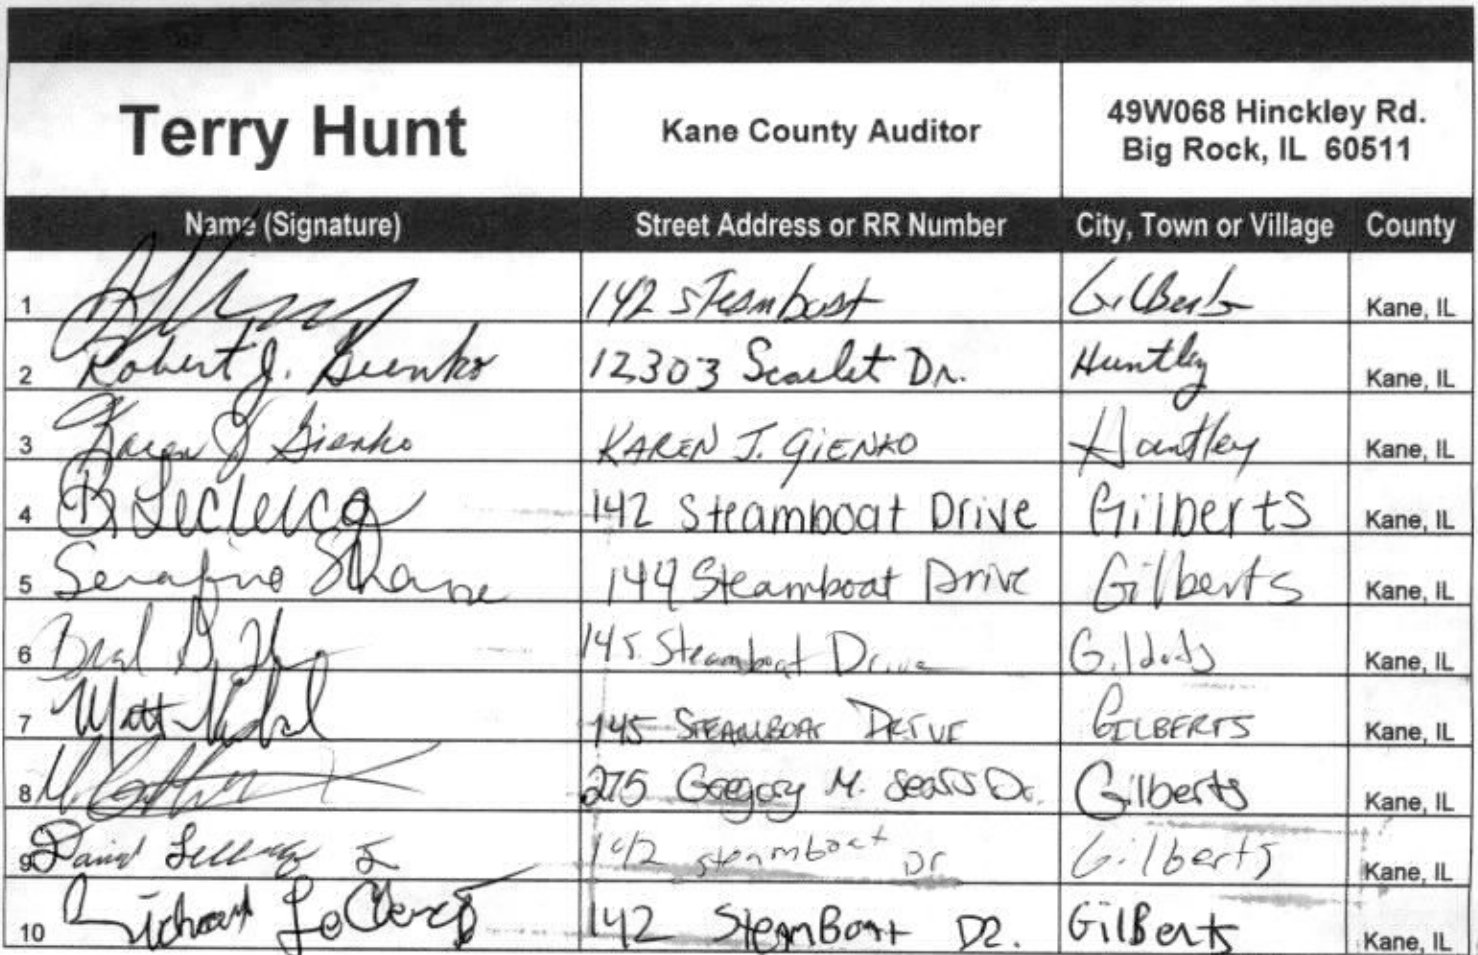 Terry Hunt Kane County Auditor 49W068 Hinckley Rd.
Big Rock, IL 60511
Name (Signature) Street Address or RR Number City, Town or Village County
1 142 Steamboat Gilberts Kane, IL
2 Robert J. Gienko 12303 Scarlet Dr. Huntley Kane, IL
3 Karen J Gienko KAREN J. GIENKO Huntley Kane, IL
4 B Leclercq 142 Steamboat Drive Gilberts Kane, IL
5 Serafino Shane 144 Steamboat Drive Gilberts Kane, IL
6 145 Steamboat Drive Gilberts Kane, IL
7 Matt 145 STEAMBOAT DRIVE GILBERTS Kane, IL
8 M. 275 Gregory M. Sears Dr. Gilberts Kane, IL
9 David 142 steamboat Dr Gilberts Kane, IL
10 Richard LeClercq 142 SteamBoat DR. GilBerts Kane, IL